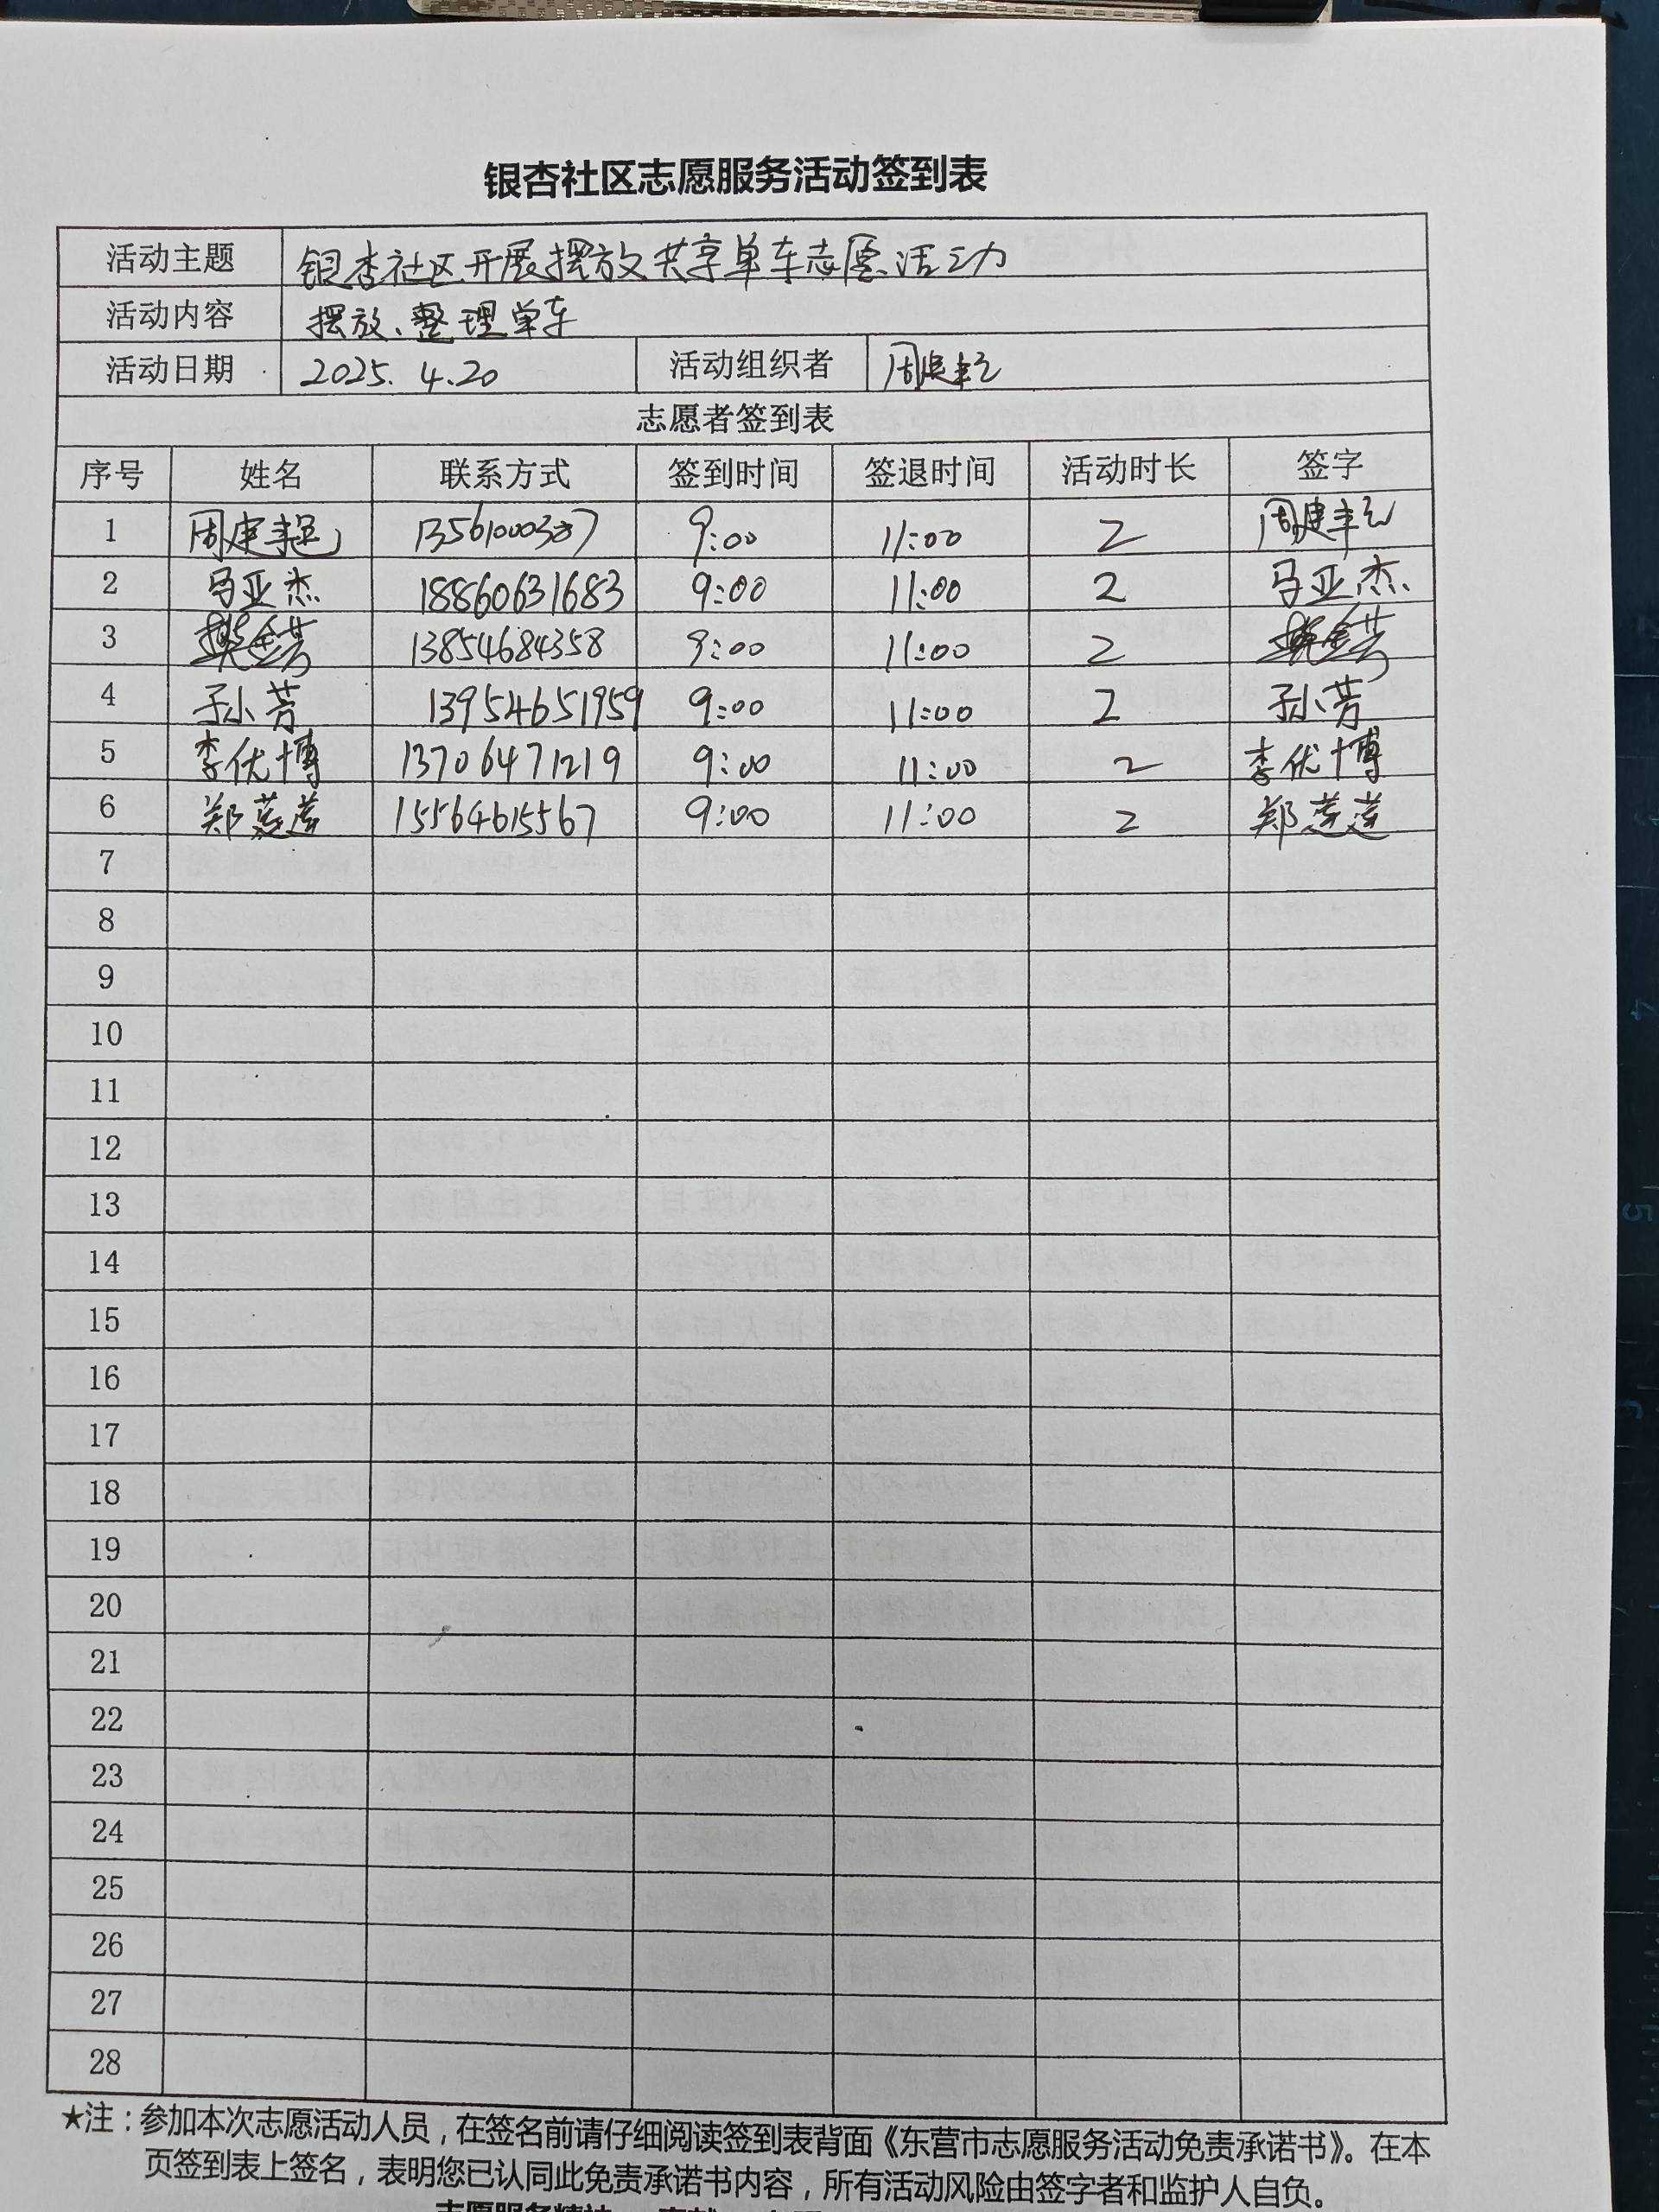 银杏社区志愿服务活动签到表
活动主题 银杏社区开展摆放共享单车志愿活动
活动内容 摆放、整理单车
活动日期 2025.4.20 活动组织者 周建
志愿者签到表
序号 姓名 联系方式 签到时间 签退时间 活动时长 签字
1 周建 9:00 11:00 2 周建
2 马亚杰 18860631683 9:00 11:00 2 马亚杰
3 樊金芳 13854684358 9:00 11:00 2 樊金芳
4 孙芳 13954651959 9:00 11:00 2 孙芳
5 李优博 13706471219 9:00 11:00 2 李优博
6 郑莲莲 15564615567 9:00 11:00 2 郑莲莲
7
8
9
10
11
12
13
14
15
16
17
18
19
20
21
22
23
24
25
26
27
28
★注：参加本次志愿活动人员，在签名前请仔细阅读签到表背面《东营市志愿服务活动免责承诺书》。在本
页签到表上签名，表明您已认同此免责承诺书内容，所有活动风险由签字者和监护人自负。